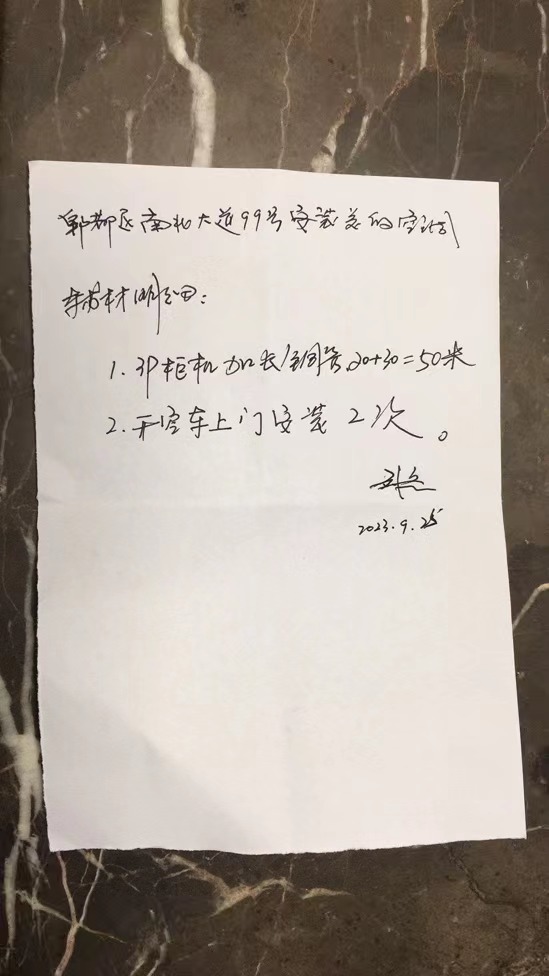 郫都区南北大道99号安装美的空调
辅材明细：
1. 3P柜机加长铜管20+30=50米
2. 开空车上门安装2次。
2023.9.25